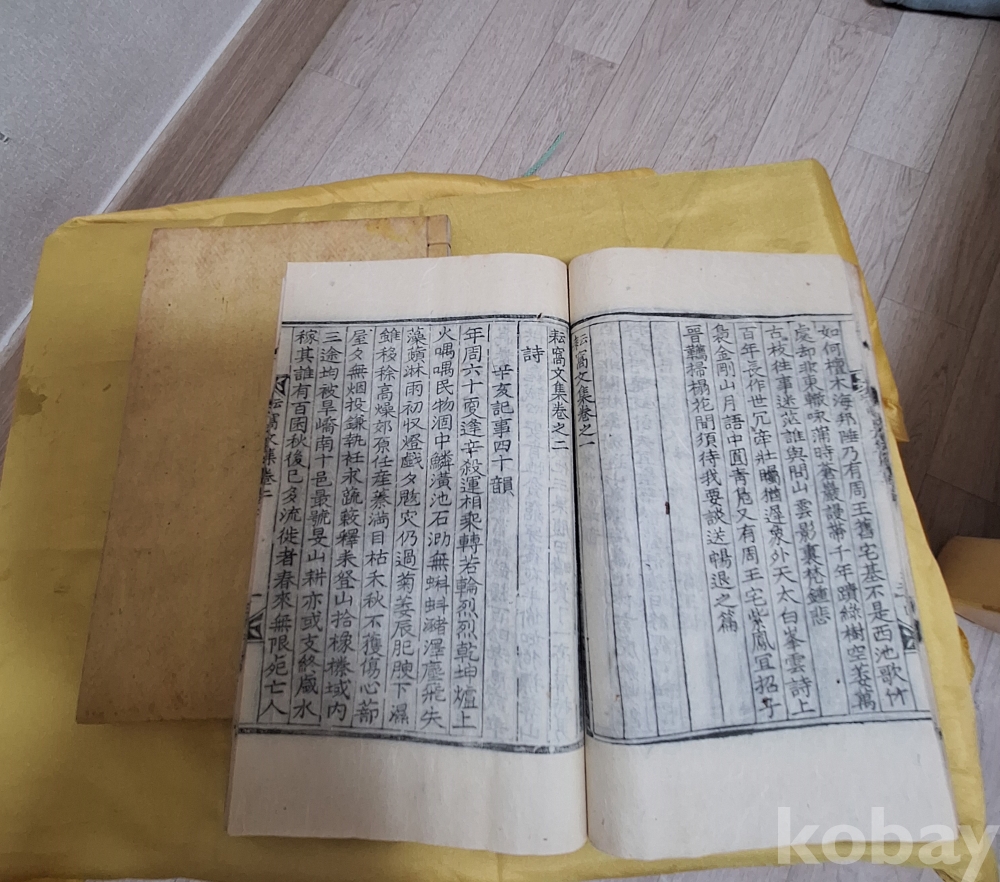 如何檀木海邦陲乃有周王舊宅基不是西池歌竹
處却非東轍咏蒲時蒼巖謾帶千年蹟綠樹空羕萬
古枝徃事迷茫誰與問山雲影裏梵鍾悲
百年長作世冗牽壯矚猶遲象外天太白峯雲詩上
袅金剛山月語中圓靑鳧又有周王宅紫鳳冝招子
晋韉掃榻花間須待我要談送暢退之篇
耘窩文集卷之一
耘窩文集卷之二
詩
辛亥記事四十韻
年周六十戛逢辛殺運相乘轉若輪烈烈乾坤爐上
火喁喁民物涸中鱗潢池石泐無蝌蚪瀦澤塵飛失
藻蘋麻雨初収燈戲夕㷔灾仍過菊萎辰肥腴下濕
雖移稌高燥郊原任産蓁滿目枯禾秋不獲傷心蔀
屋夕無烟投鎌執衽求蔬藪釋耒登山拾橡榛域内
三途均被旱嶠南十邑最號旻山耕亦或支終歲水
稼其誰有百囷秋後已多流徙者春來無限死亡人
耘窩文集卷二
kobay